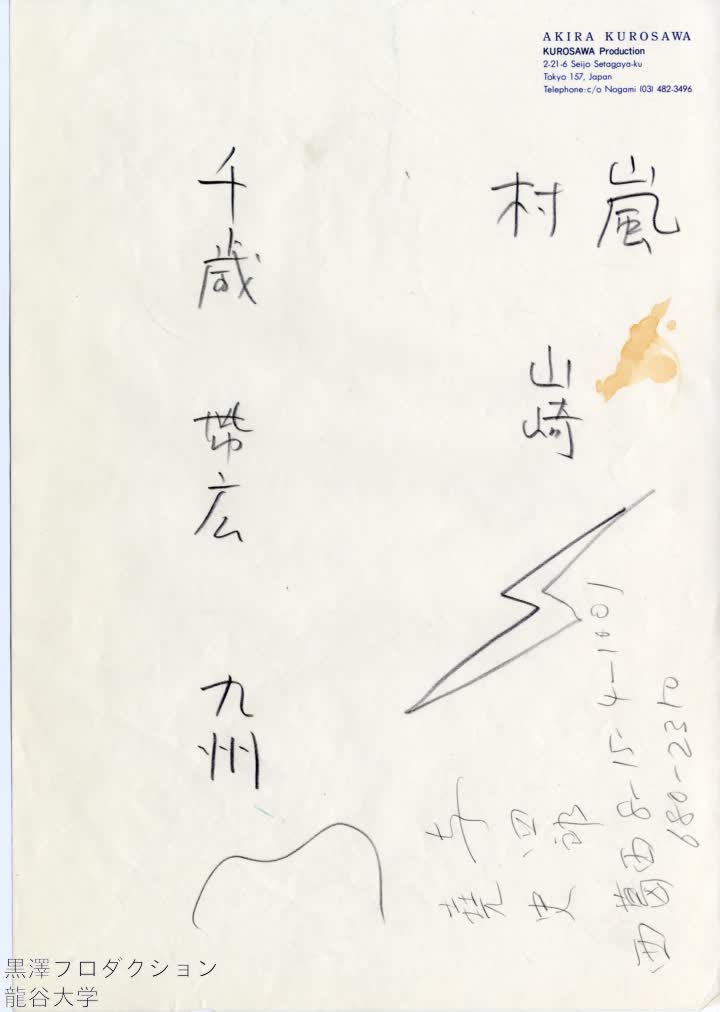 AKIRA KUROSAWA
KUROSAWA Production
2-21-6 Seijo Setagaya-ku
Tokyo 157, Japan
Telephone: c/o Nogami (03) 482-3496
嵐
村
山崎
千歳
帯広
九州
西葛西 8-15-4-1001
680-2310
黒澤プロダクション
龍谷大学